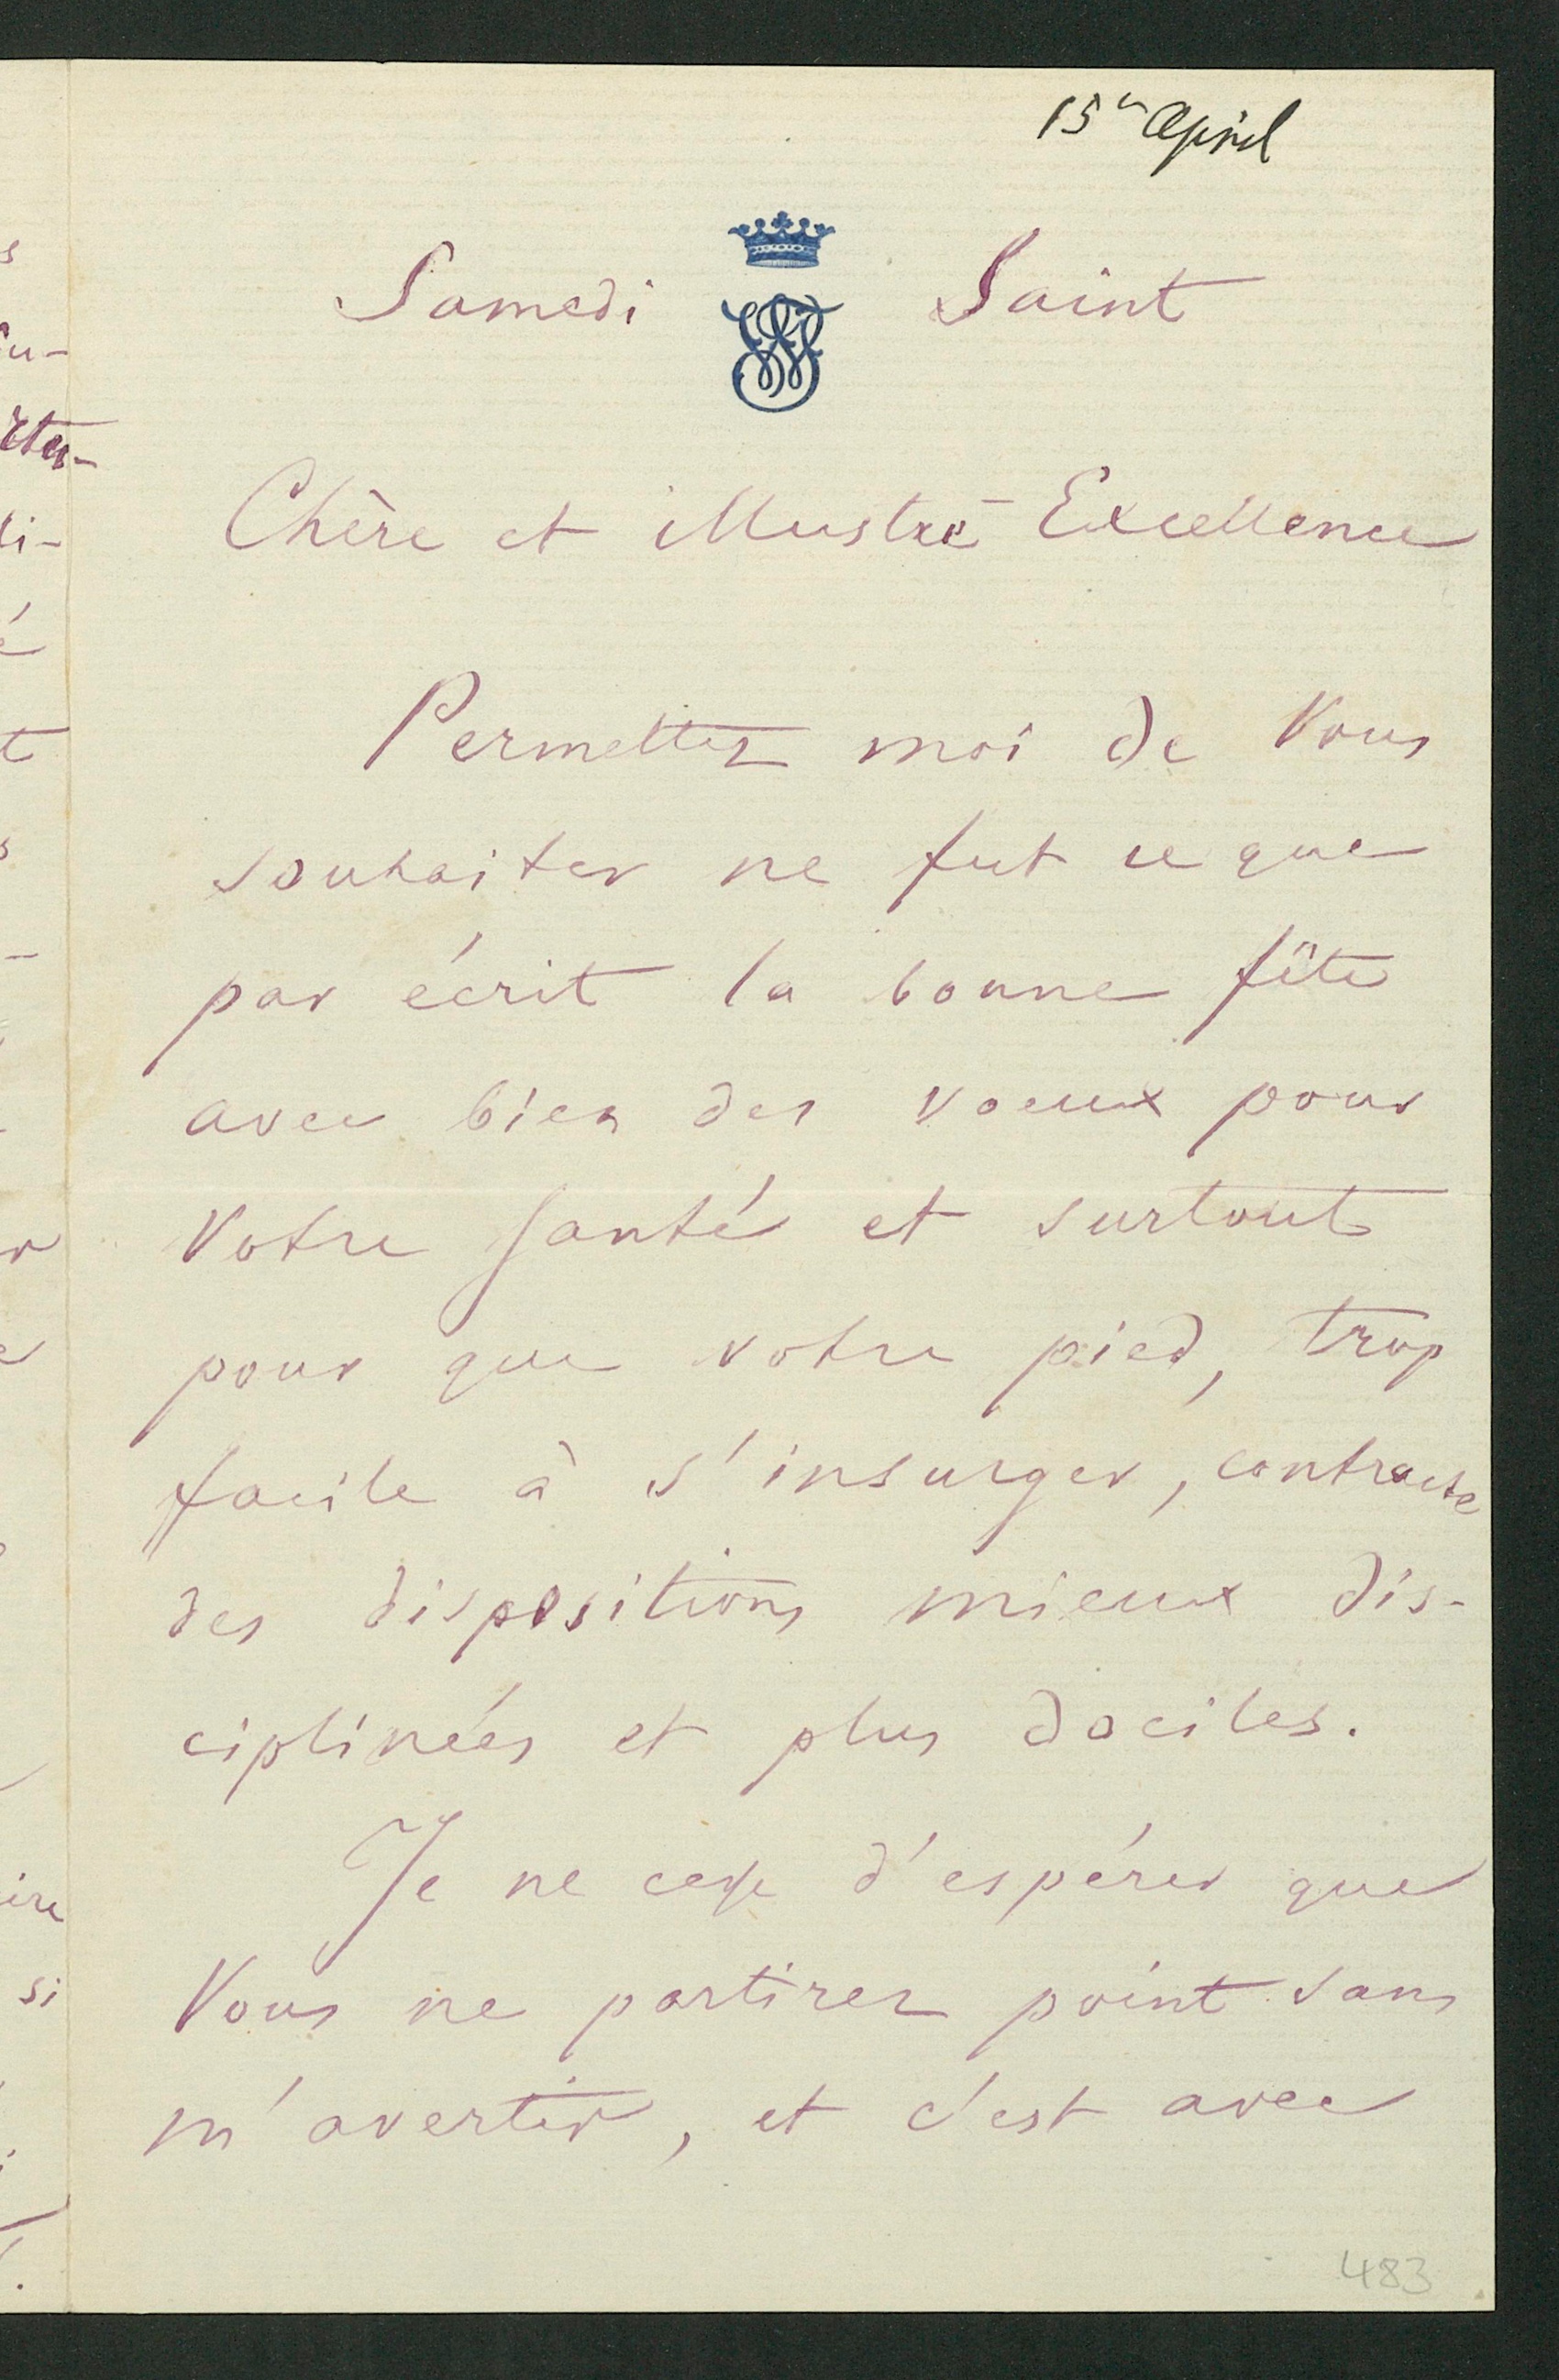 15n April
Samedi Saint
Chère et illustre Excellence
Permettez moi de Vous
souhaiter ne fut ce que
par écrit la bonne fête
avec bien des voeux pour
Votre santé et surtout
pour que votre pied, trop
facile à s'insurger, contracte
des dispositions mieux dis-
ciplinées et plus dociles.
Je ne cesse d'espérer que
Vous ne partirez point sans
m'avertir, et c'est avec
483